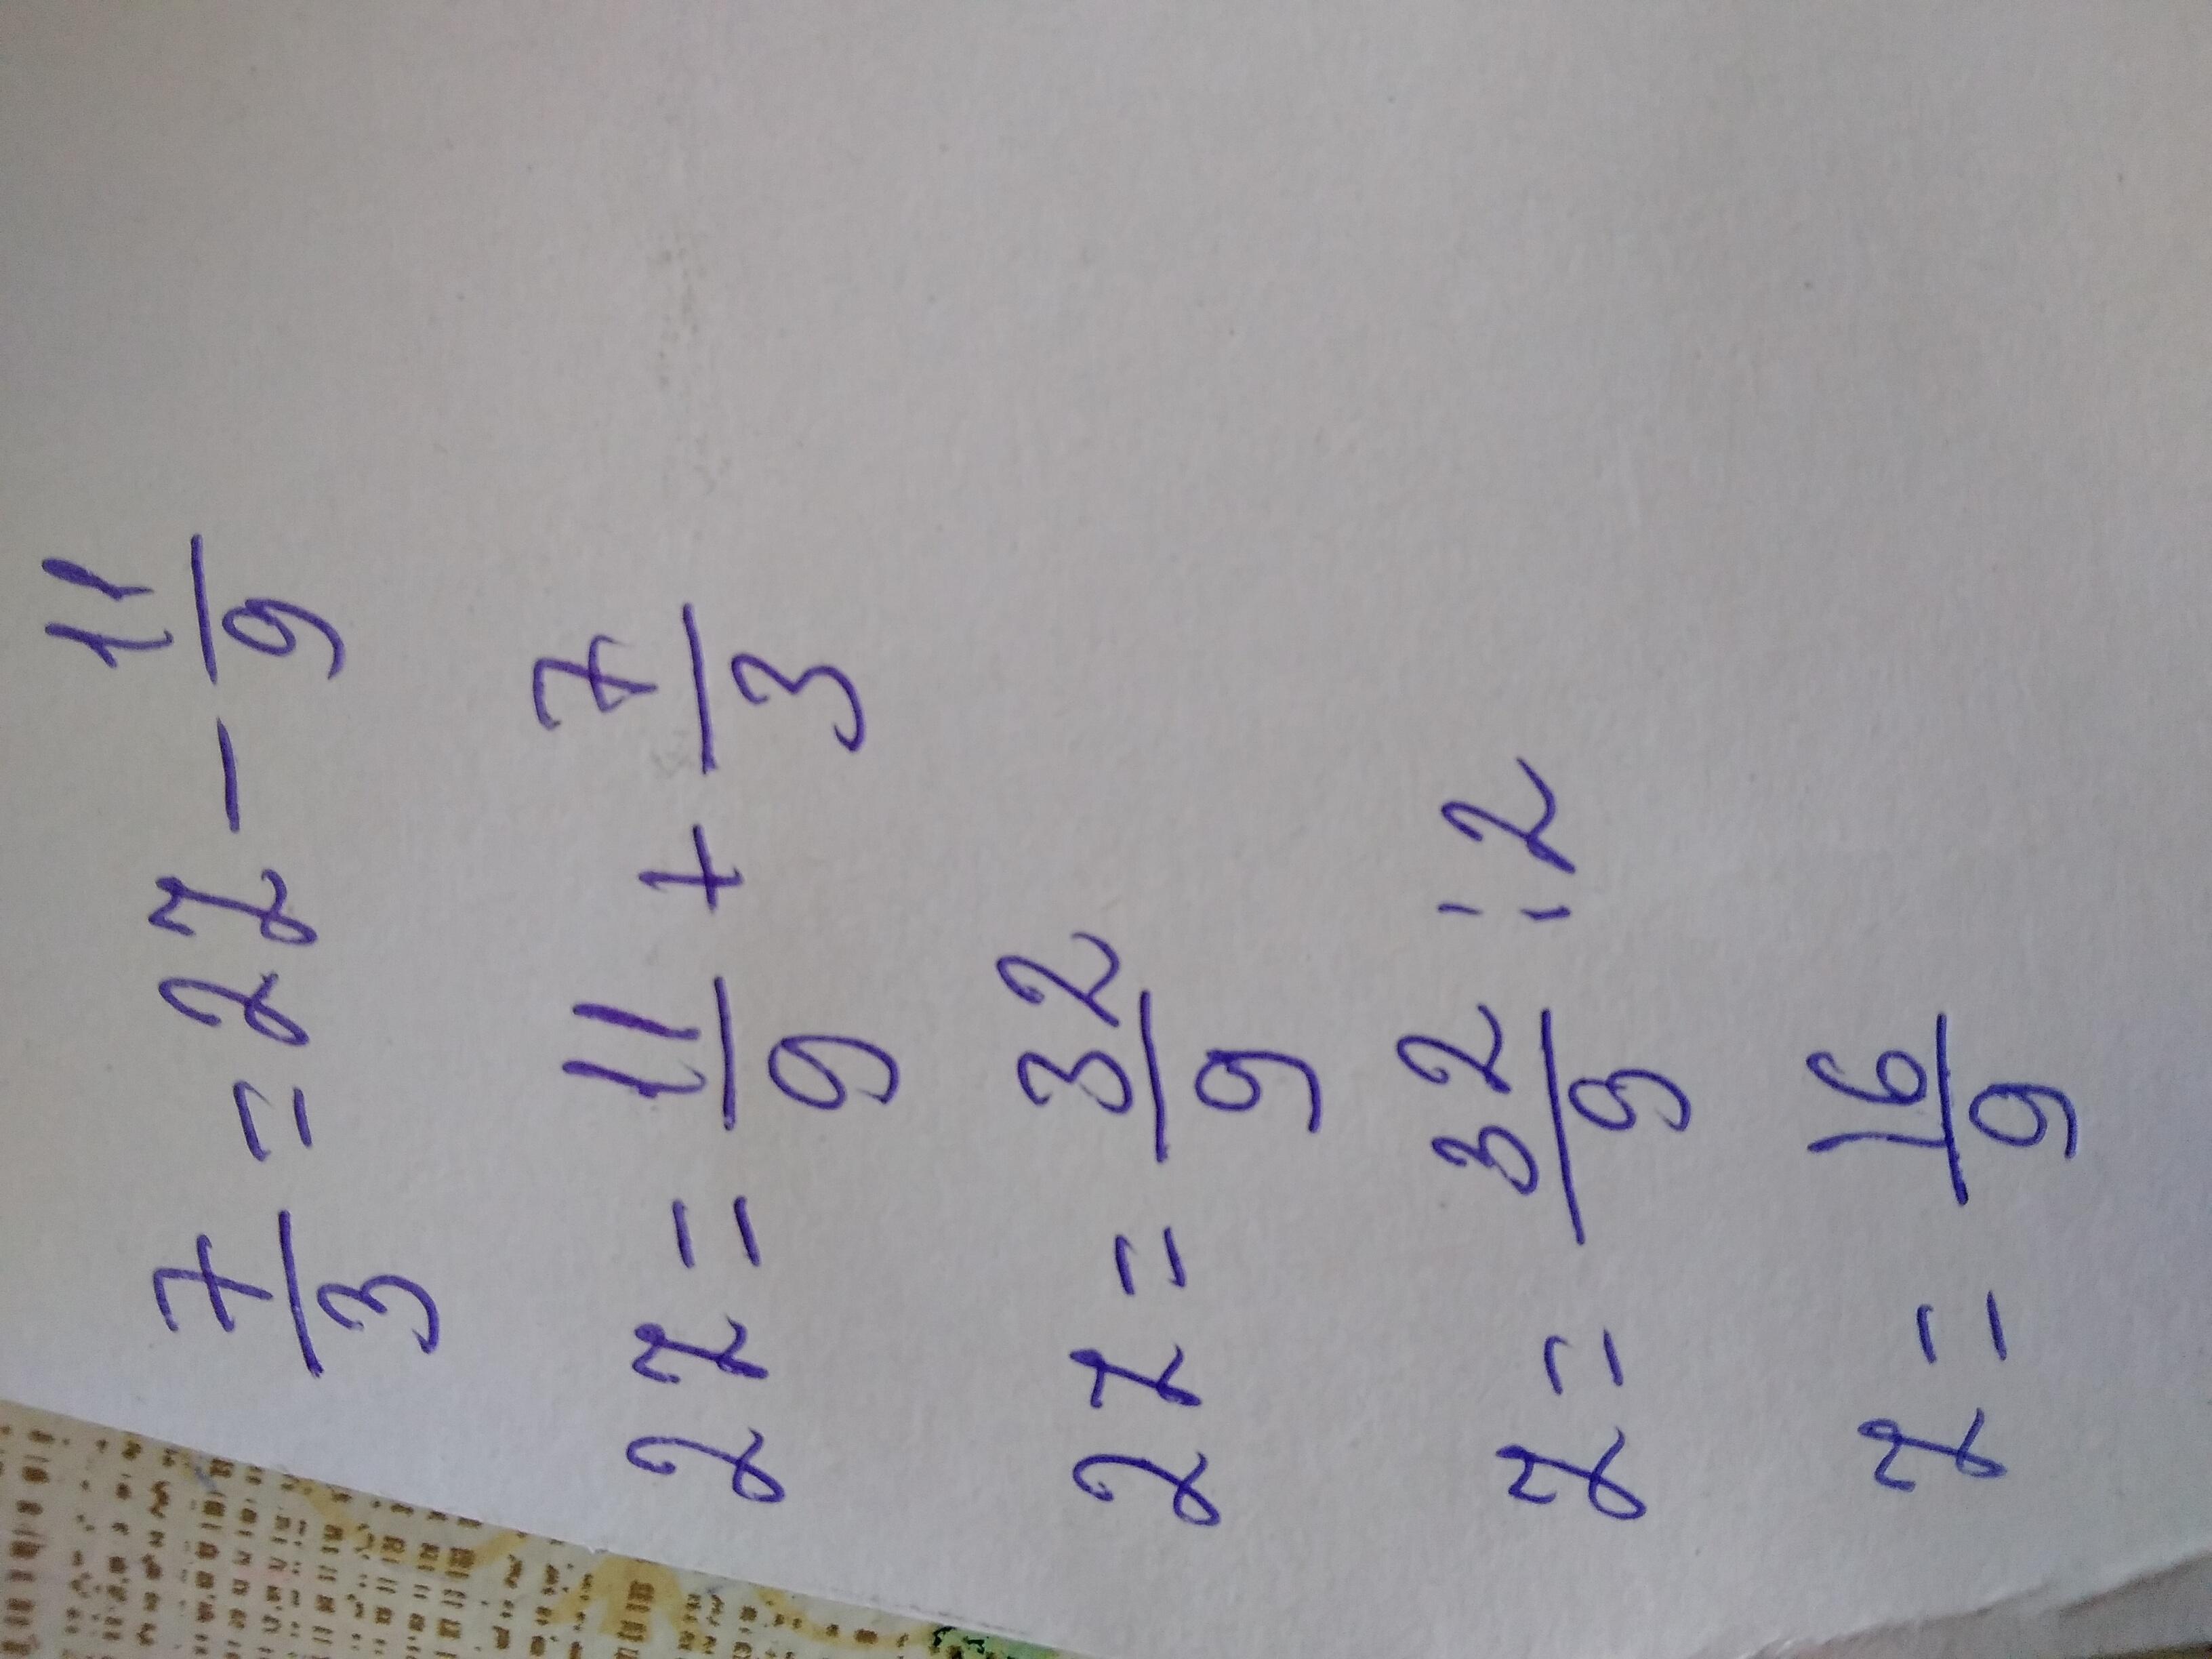 7/3 = 2z - 11/9
2z = 11/9 + 7/3
2z = 32/9
z = 32/9 : 2
z = 16/9